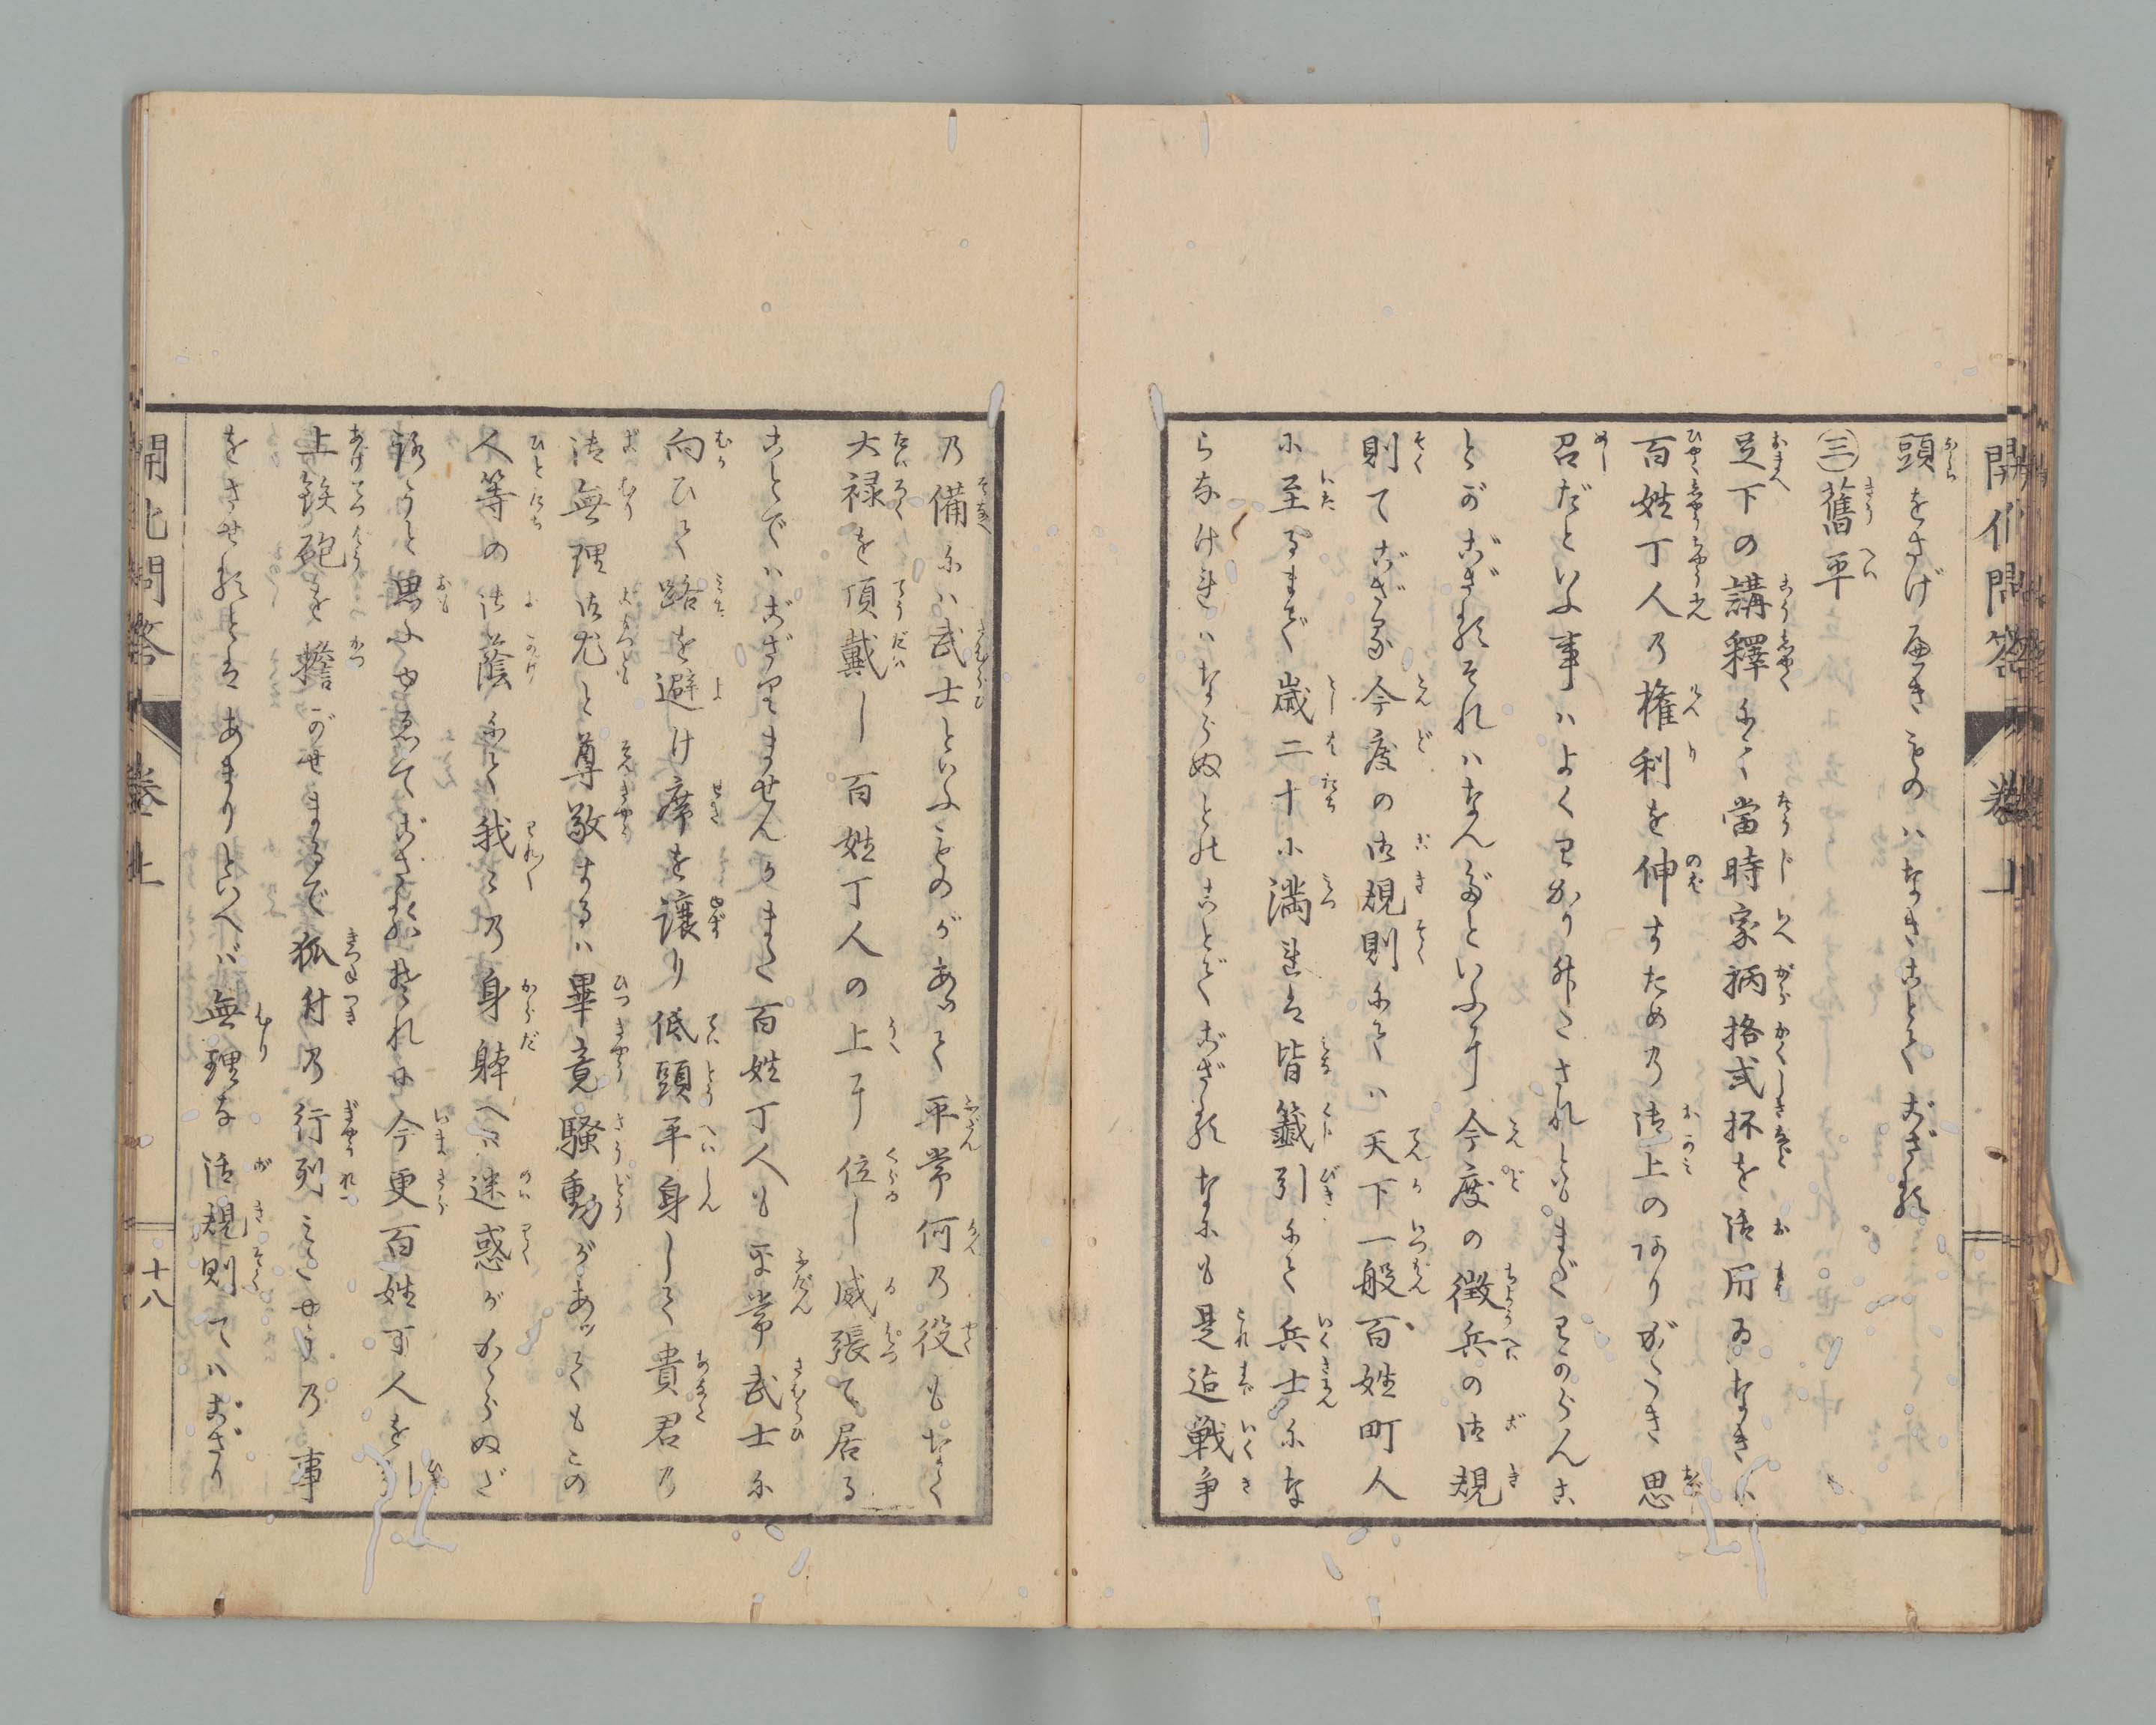 開化問答 卷上
頭をさげべきものハなきことでござる
㊂舊平
足下の講釋にて當時家柄格式抔を御用ゐなきハ
百姓丁人の權利を伸すための御上のありがたき思
召だといふ事ハよくわかりましたされどもまだわからんこ
とがござるそれハなんだといふに今度の徴兵の御規
則でござる今度の御規則にてハ天下一般百姓町人
に至るまで歳二十に滿れば皆籤引にて兵士にな
らなければならぬとのことでござるなにも是迄戦争
の備にハ武士といふものがあつて平常何の役もなく
大禄を頂戴し百姓丁人の上に位し威張て居る
ことでハござりませんかまた百姓丁人も平常武士に
向ひて路を避け席を讓り低頭平身して貴君の
御無理御尤と尊敬するハ畢竟騒動があツてもこの
人等の御蔭にて我々の身躰へハ迷惑がかゝらぬだ
らうと思ふゆゑでござるそれに今更百姓町人を
上銕砲を擔がせまるで狐付の行列みたやうの事
をさせるとはあまりといへバ無理な御規則でハござり
開化問答 卷上
十八